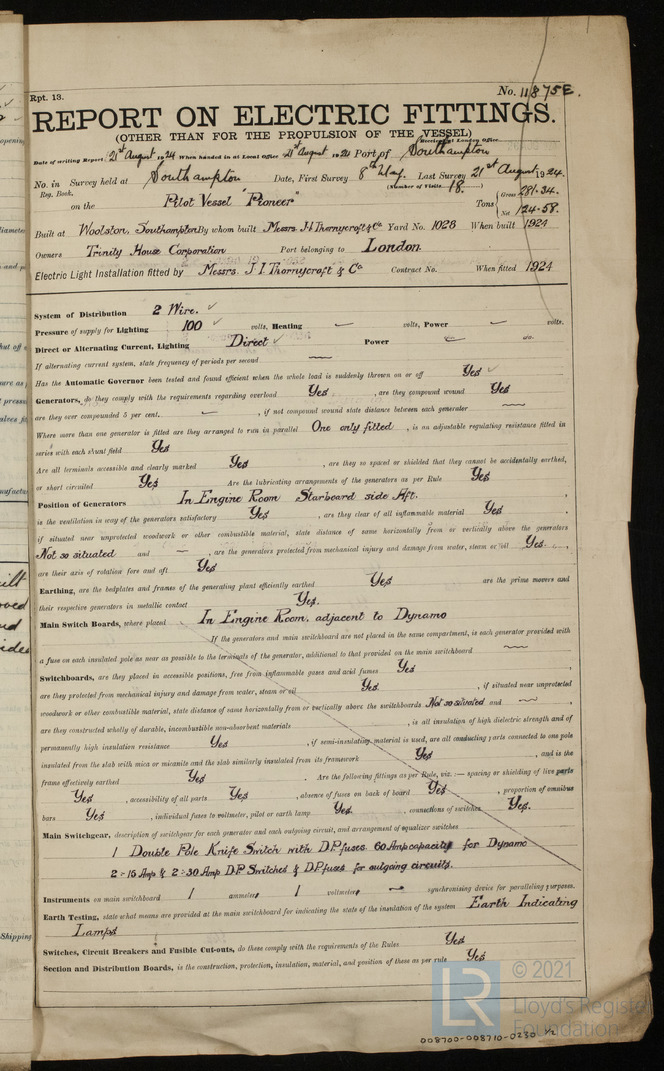 Rpt. 13.
No. 11875E.
REPORT ON ELECTRIC FITTINGS.
(OTHER THAN FOR THE PROPULSION OF THE VESSEL)
Received at London Office
Date of writing Report 21st August 1924 When handed in at Local Office 21st August 1924 Port of Southampton
No. in Survey held at Southampton Date, First Survey 8th May Last Survey 21st August 1924.
Reg. Book. (Number of Visits 18.)
on the Pilot Vessel "Pioneer" Tons { Gross 281.34. Net 124.58.
Built at Woolston, Southampton By whom built Messrs J.I. Thornycroft & Co Yard No. 1028 When built 1924
Owners Trinity House Corporation Port belonging to London
Electric Light Installation fitted by Messrs. J. I Thornycroft & Co Contract No. When fitted 1924
System of Distribution 2 Wire.
Pressure of supply for Lighting 100 volts, Heating volts, Power volts.
Direct or Alternating Current, Lighting Direct Power
If alternating current system, state frequency of periods per second
Has the Automatic Governor been tested and found efficient when the whole load is suddenly thrown on or off Yes
Generators, do they comply with the requirements regarding overload Yes, are they compound wound Yes
are they over compounded 5 per cent. , if not compound wound state distance between each generator
Where more than one generator is fitted are they arranged to run in parallel One only fitted, is an adjustable regulating resistance fitted in
series with each shunt field Yes
Are all terminals accessible and clearly marked Yes, are they so spaced or shielded that they cannot be accidentally earthed,
or short circuited Yes Are the lubricating arrangements of the generators as per Rule Yes
Position of Generators In Engine Room Starboard side Aft.
is the ventilation in way of the generators satisfactory Yes, are they clear of all inflammable material Yes,
if situated near unprotected woodwork or other combustible material, state distance of same horizontally from or vertically above the generators
Not so situated and , are the generators protected from mechanical injury and damage from water, steam or oil Yes,
are their axis of rotation fore and aft Yes
Earthing, are the bedplates and frames of the generating plant efficiently earthed Yes are the prime movers and
their respective generators in metallic contact Yes.
Main Switch Boards, where placed In Engine Room, adjacent to Dynamo
If the generators and main switchboard are not placed in the same compartment, is each generator provided with
a fuse on each insulated pole as near as possible to the terminals of the generator, additional to that provided on the main switchboard
Switchboards, are they placed in accessible positions, free from inflammable gases and acid fumes Yes,
are they protected from mechanical injury and damage from water, steam or oil Yes., if situated near unprotected
woodwork or other combustible material, state distance of same horizontally from or vertically above the switchboards Not so situated and ,
are they constructed wholly of durable, incombustible non-absorbent materials , is all insulation of high dielectric strength and of
permanently high insulation resistance Yes, if semi-insulating material is used, are all conducting parts connected to one pole
insulated from the slab with mica or micanite and the slab similarly insulated from its framework Yes, and is the
frame effectively earthed Yes. Are the following fittings as per Rule, viz.:— spacing or shielding of live parts
Yes, accessibility of all parts Yes, absence of fuses on back of board Yes, proportion of omnibus
bars Yes, individual fuses to voltmeter, pilot or earth lamp Yes, connections of switches Yes.
Main Switchgear, description of switchgear for each generator and each outgoing circuit, and arrangement of equalizer switches
1 Double Pole Knife Switch with D.P. fuses 60 Amp capacity for Dynamo
2-15 Amp & 2-30 Amp D.P Switches & D.P fuses for outgoing circuits.
Instruments on main switchboard 1 ammeter 1 voltmeter synchronising device for paralleling purposes.
Earth Testing, state what means are provided at the main switchboard for indicating the state of the insulation of the system Earth Indicating
Lamps
Switches, Circuit Breakers and Fusible Cut-outs, do these comply with the requirements of the Rules Yes
Section and Distribution Boards, is the construction, protection, insulation, material, and position of these as per rule Yes
LR © 2021
Lloyd's Register
Foundation
008700-008710-0230 1/2